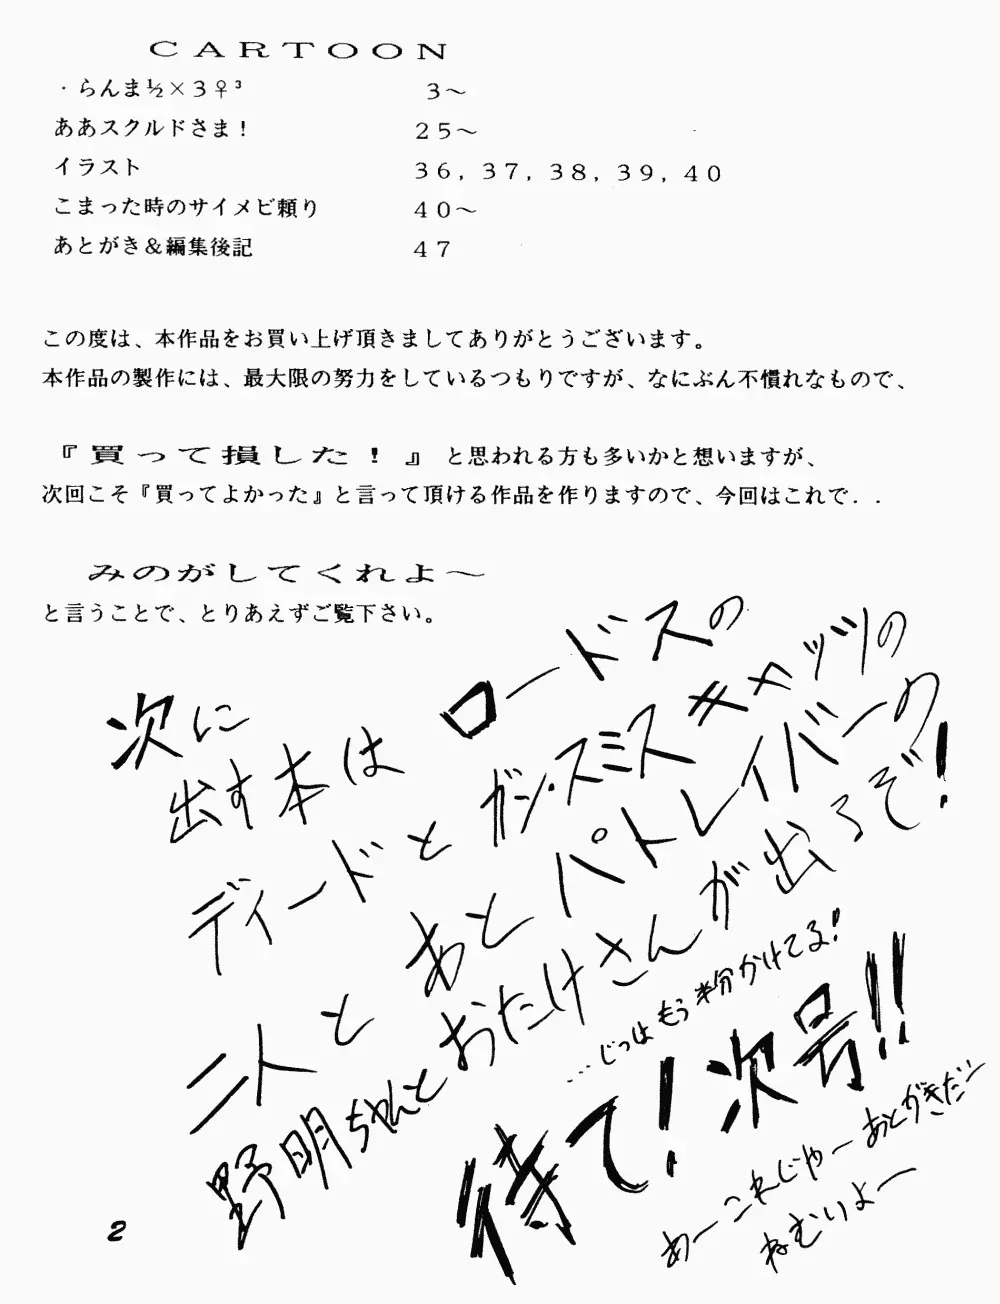 CARTOON
・らんま½×3♀³ 3～
ああスクルドさま！ 25～
イラスト 36，37，38，39，40
こまった時のサイメビ頼り 40～
あとがき＆編集後記 47
この度は、本作品をお買い上げ頂きましてありがとうございます。
本作品の製作には、最大限の努力をしているつもりですが、なにぶん不慣れなもので、
『買って損した！』と思われる方も多いかと想いますが、
次回こそ『買ってよかった』と言って頂ける作品を作りますので、今回はこれで．．
みのがしてくれよ～
と言うことで、とりあえずご覧下さい。
次に
出す本は ロードスの
ディードと ガン・スミスキャッツの
二人と あとパトレイバーの
野明ちゃんとおたけさんが出るぞ！
…じつはもう半分かけてる！
待て！次号！！
あーこれじゃーあとがきだー
ねむいよー
2